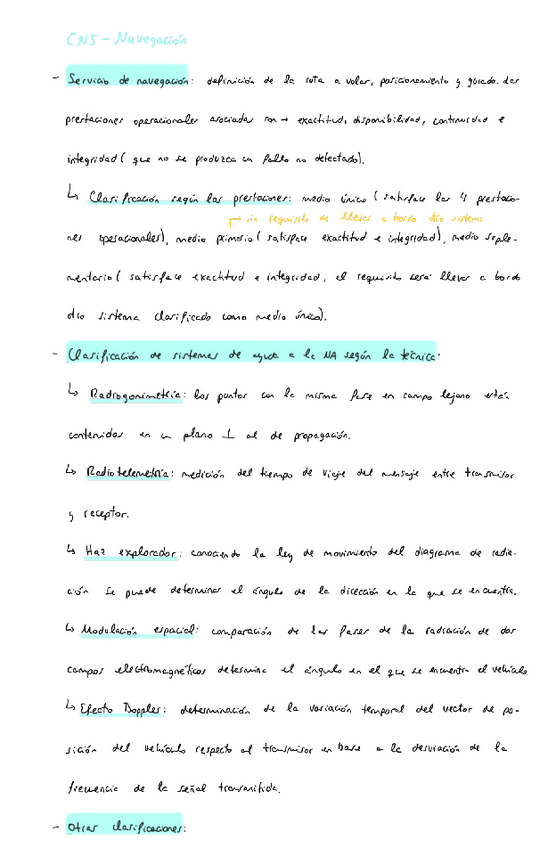 CNS - Navegación
- Servicio de navegación: definición de la ruta a volar, posicionamiento y guiado. Las
prestaciones operacionales asociadas son → exactitud, disponibilidad, continuidad e
integridad (que no se produzca un fallo no detectado).
↳ Clasificación según las prestaciones: medio único (satisface las 4 prestacio-
→ sin requisito de llevar a bordo otro sistema
nes operacionales), medio primario (satisface exactitud e integridad), medio suple-
mentario (satisface exactitud e integridad, el requisito será llevar a bordo
otro sistema clasificado como medio único).
- Clasificación de sistemas de ayuda a la NA según la técnica:
↳ Radiogoniometría: los puntos con la misma fase en campo lejano están
contenidos en un plano ⊥ al de propagación.
↳ Radiotelemetría: medición del tiempo de viaje del mensaje entre transmisor
y receptor.
↳ Haz explorador: conociendo la ley de movimiento del diagrama de radia-
ción se puede determinar el ángulo de la dirección en la que se encuentra.
↳ Modulación espacial: comparación de las fases de la radiación de dos
campos electromagnéticos determina el ángulo en el que se encuentra el vehículo
↳ Efecto Doppler: determinación de la variación temporal del vector de po-
sición del vehículo respecto al transmisor en base a la desviación de la
frecuencia de la señal transmitida.
- Otras clasificaciones: